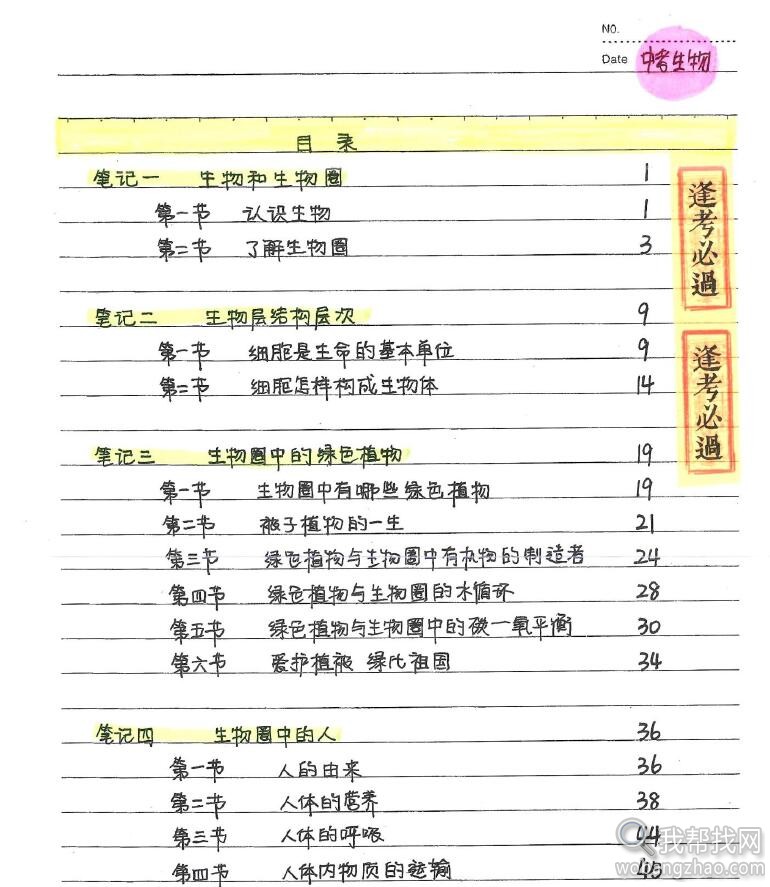 NO.
Date 中考生物
目录
笔记一 生物和生物圈 1
第一节 认识生物 1
第二节 了解生物圈 3
逢考必過
笔记二 生物层结构层次 9
第一节 细胞是生命的基本单位 9
第二节 细胞怎样构成生物体 14
逢考必過
笔记三 生物圈中的绿色植物 19
第一节 生物圈中有哪些绿色植物 19
第二节 被子植物的一生 21
第三节 绿色植物与生物圈中有机物的制造者 24
第四节 绿色植物与生物圈的水循环 28
第五节 绿色植物与生物圈中的碳一氧平衡 30
第六节 爱护植被 绿化祖国 34
笔记四 生物圈中的人 36
第一节 人的由来 36
第二节 人体的营养 38
第三节 人体的呼吸 44
第四节 人体内物质的运输
我帮找网
wobangzhao.com